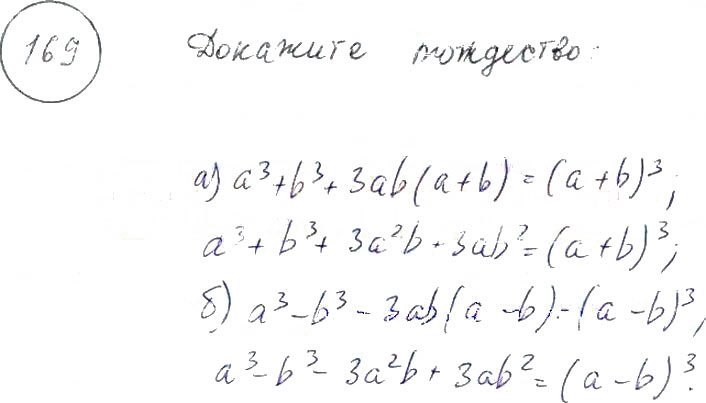 169 Докажите тождество:
а) a³+b³+3ab(a+b)=(a+b)³;
a³+b³+3a²b+3ab²=(a+b)³;
б) a³-b³-3ab(a-b)=(a-b)³,
a³-b³-3a²b+3ab²=(a-b)³.